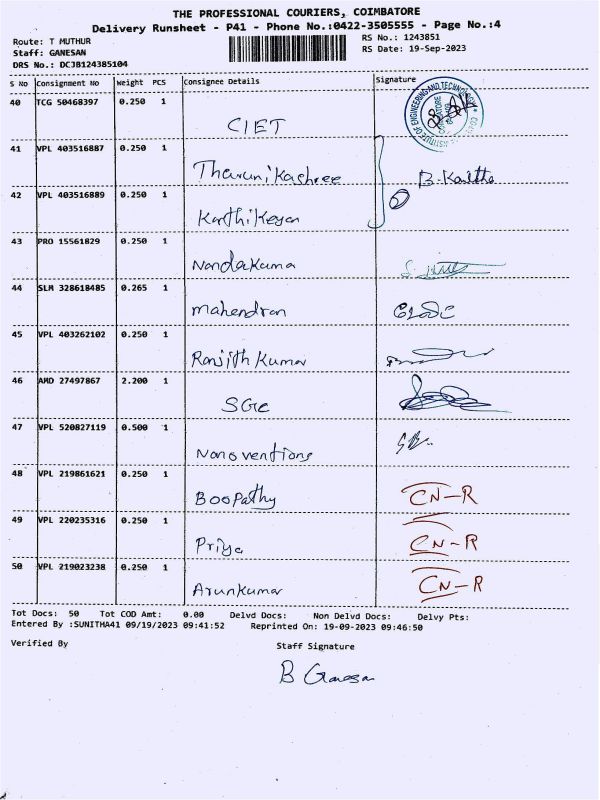 THE PROFESSIONAL COURIERS, COIMBATORE
Delivery Runsheet - P41 - Phone No.:0422-3505555 - Page No.:4
Route: T MUTHUR
RS No.: 1243851
Staff: GANESAN
RS Date: 19-Sep-2023
DRS No.: DCJB124385104
S No Consignment No Weight PCS Consignee Details Signature
40 TCG 50468397 0.250 1 CIET
41 VPL 403516887 0.250 1 Tharunikashree B. Kavitha
42 VPL 403516889 0.250 1 Karthikeyan
43 PRO 15561829 0.250 1 Nandakuma
44 SLM 328618485 0.265 1 Mahendran
45 VPL 403262102 0.250 1 Ranjith Kumar
46 AMD 27497867 2.200 1 SGC
47 VPL 520827119 0.500 1 Nanoventions
48 VPL 219861621 0.250 1 Boopathy CN-R
49 VPL 220235316 0.250 1 Priya CN-R
50 VPL 219023238 0.250 1 Arunkumar CN-R
Tot Docs: 50 Tot COD Amt: 0.00 Delvd Docs: Non Delvd Docs: Delvy Pts:
Entered By :SUNITHA41 09/19/2023 09:41:52 Reprinted On: 19-09-2023 09:46:50
Verified By Staff Signature
B Ganesan